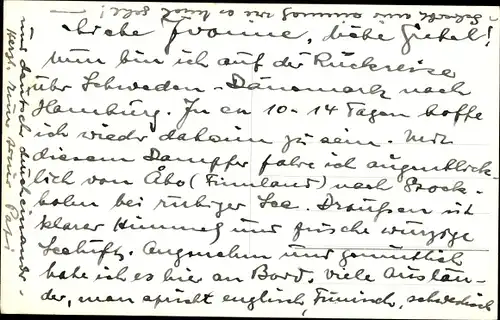 Liebe Yvonne, liebe Gisbel!
nun bin ich auf der Rückreise
über Schweden - Dänemark nach
Hamburg. In ca 10-14 Tagen hoffe
ich wieder daheim zu sein. Mit
diesem Dampfer fahre ich augenblick-
lich von Åbo (Finnland) nach Stock-
holm bei ruhiger See. Draußen ist
klarer Himmel und frische würzige
Seeluft. Angenehm und gemütlich
habe ich es hier an Bord, viele Auslän-
der, man spricht englisch, Finnisch, schwedisch
und deutsch durcheinander.
Herzl. Papi
Schreibt mir einmal wie es Euch geht!